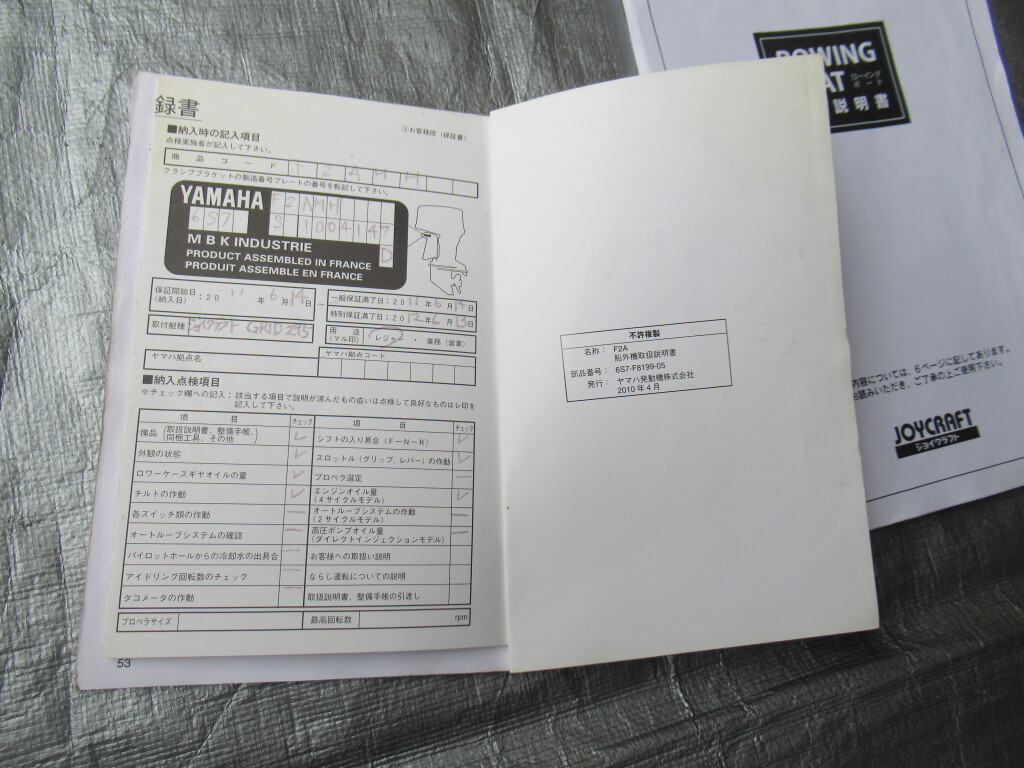 録書
■納入時の記入項目
③お客様控(保証書)
点検実施者が記入して下さい。
商品コード F2AMH
クランプブラケットの製造番号プレートの番号を転記して下さい。
YAMAHA F2AMH
6S7 S 1004147
D
MBK INDUSTRIE
PRODUCT ASSEMBLED IN FRANCE
PRODUIT ASSEMBLE EN FRANCE
保証開始日:20 11 年 6 月 14 日 ~ 一般保証満了日:20
(納入日)
特別保証満了日:2012年6月13日
取付艇種 ジョイクラフト GRID295
用途 レジャー ・ 業務(営業)
(マル印)
ヤマハ拠点名
ヤマハ拠点コード
■納入点検項目
※チェック欄への記入:該当する項目で説明が済んだもの或いは点検して良好なものはレ印を
記入して下さい。
項目 チェック 項目 チェック
備品(取扱説明書、整備手帳、同梱工具、その他) シフトの入り具合(F-N-R)
外観の状態 スロットル(グリップ、レバー)の作動
ロワーケースギヤオイルの量 プロペラ選定
チルトの作動 エンジンオイル量(4サイクルモデル)
各スイッチ類の作動 オートルーブシステムの作動(2サイクルモデル)
オートルーブシステムの確認 高圧ポンプオイル量(ダイレクトインジェクションモデル)
パイロットホールからの冷却水の出具合 お客様への取扱い説明
アイドリング回転数のチェック ならし運転についての説明
タコメータの作動 取扱説明書、整備手帳の引渡し
プロペラサイズ 最高回転数 rpm
53
不許複製
名称: F2A
船外機取扱説明書
部品番号: 6S7-F8199-05
発行: ヤマハ発動機株式会社
2010年4月
ROWING
AT ローイングボート
説明書
内容については、6ページに記してあります。
お読みいただき、ご了承の上ご使用下さい。
JOYCRAFT
ジョイクラフト